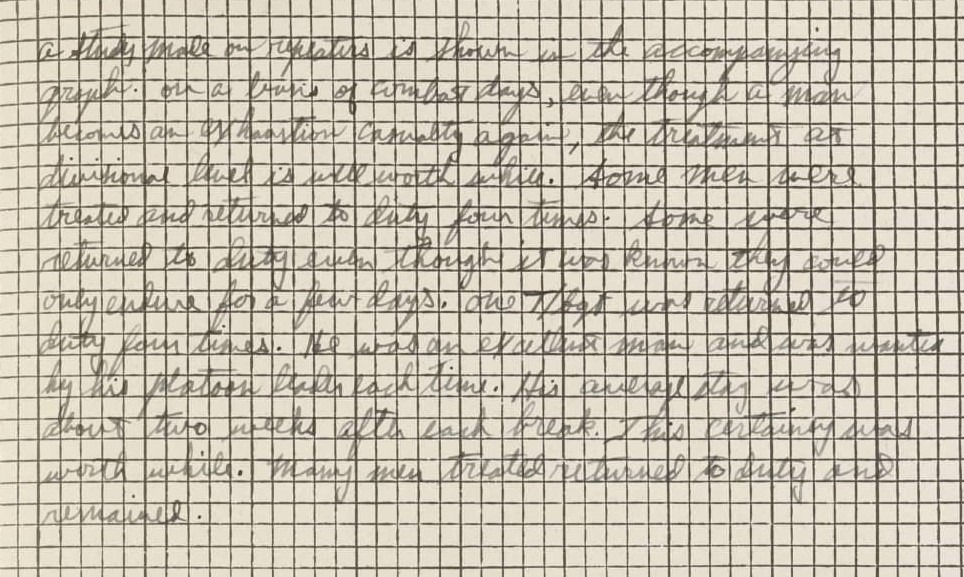 a study made on repeaters is shown in the accompanying
graph. On a basis of combat days, even though a man
becomes an exhaustion casualty again, the treatment at
divisional level is well worth while. Some men were
treated and returned to duty four times. Some were
returned to duty even though it was known they could
only endure for a few days. One T/Sgt was returned to
duty four times. He was an excellent man and was wanted
by his platoon leader each time. His average stay was
about two weeks after each break. This certainly was
worth while. Many men treated returned to duty and
remained.